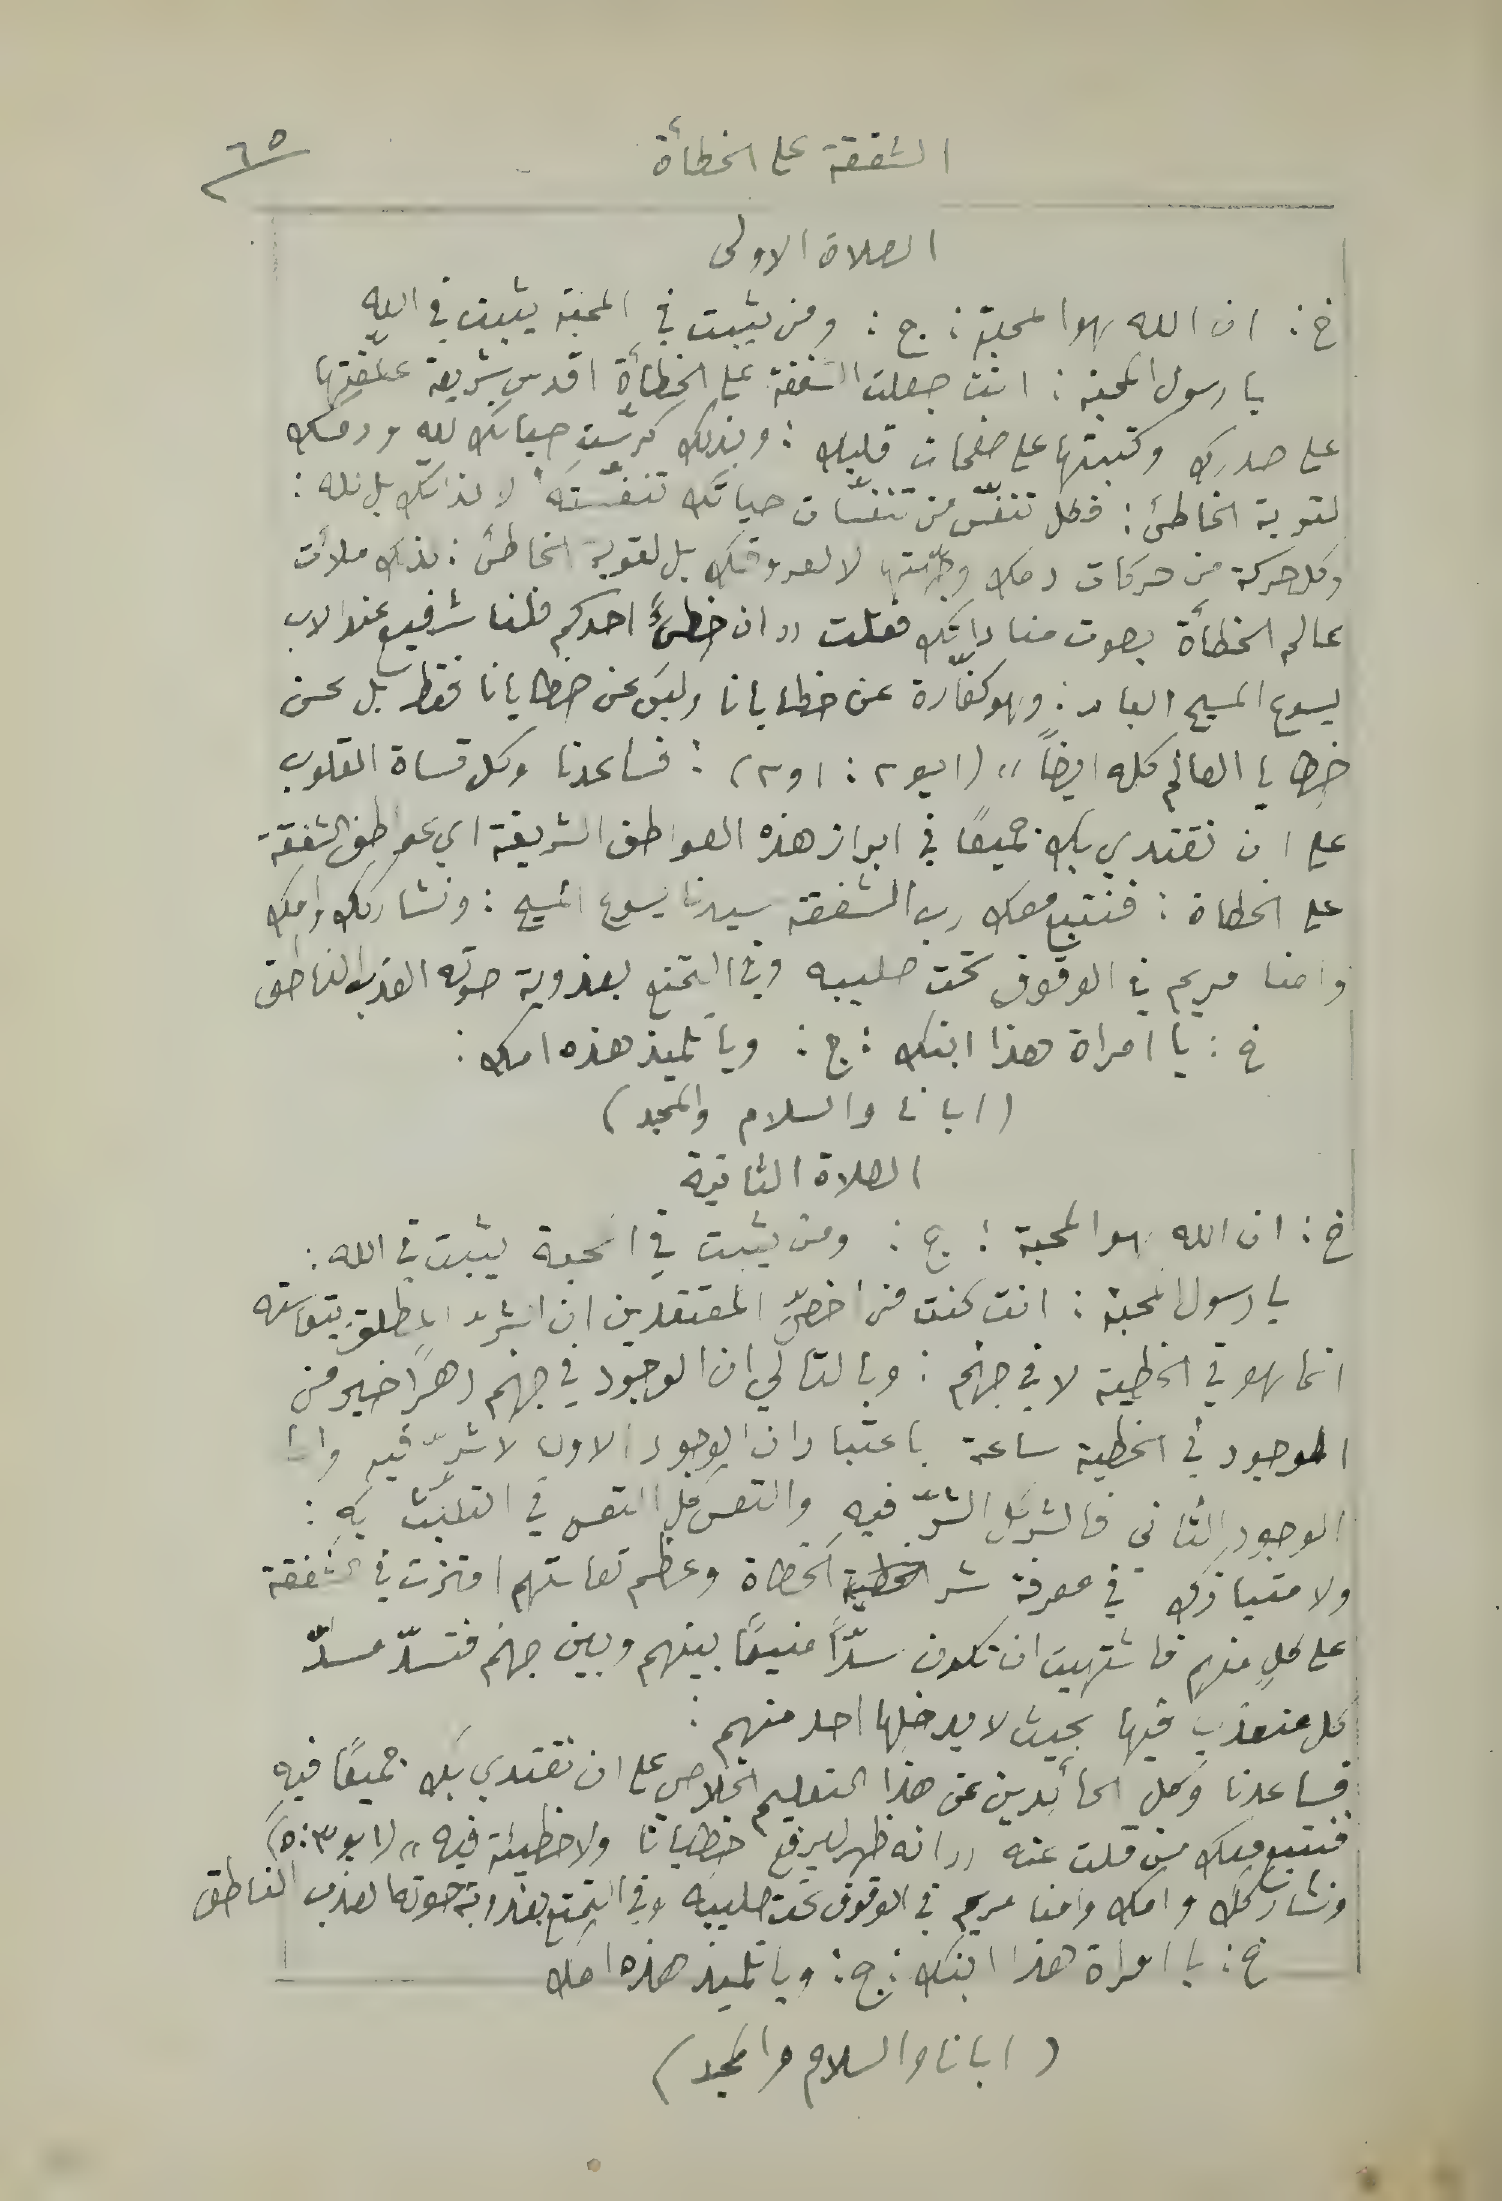 ٦٥
الشفقة على الخطأة
الصلاة الاولى
خ: ان الله هو المحبة: ج: ومن يثبت في المحبة يثبت في الله
يا رسول المحبة: انت جعلت الشفقة على الخطأة اقدس شريعة علّقتها
على صدرك وكتبتها على صفحات قلبك: وبذلك كرّست حياتك لله ودمك
لتوبة الخاطئ: فكل تنفّس من تنفّسات حياتك تنفّسته لا لذاتك بل لله:
وكل حركة من حركات دمك وجّهتها لا لعروقك بل لتوبة الخاطئ: بذلك ملأت
عالم الخطأة بصوت مناداتك فقلت «ان خطئ احدكم فلنا شفيع عند الاب
يسوع المسيح البار: وهو كفّارة عن خطايانا وليس عن خطايانا فقط بل عن
خطايا العالم كله ايضاً» (١يو٢: ١و٢): فساعدنا وكل قساة القلوب
على ان نقتدي بك جميعًا في ابراز هذه العواطف الشريفة اي عواطف الشفقة
على الخطاة: فنتبع معك رب الشفقة سيدنا يسوع المسيح: ونشاركك وامك
وامنا مريم في الوقوف تحت صليبه وفي التمتع بعذوبة صوته العذب الناطق
خ: يا امراة هذا ابنك: ج: ويا تلميذ هذه امك:
(ابانا والسلام والمجد)
الصلاة الثانية
خ: ان الله هو المحبة: ج: ومن يثبت في المحبة يثبت في الله:
يا رسول المحبة: انت كنت من اخصّ المعتقدين ان الشرّ المطلق بتعاسته
انما هو في الخطية لا في جهنم: وبالتالي ان الوجود في جهنم دهرًا خير من
الموجود في الخطية ساعة باعتبار ان الوجود الاول لا شرّ فيه واما
الوجود الثاني فالشر كل الشرّ فيه والتعس كل التعس في التلبّث به:
ولامتيازك في معرفة شر الخطية الخطاة وعظم تعاستهم امتزت في الشفقة
على كلٍ منهم فاشتهيت ان تكون سدًّا منيعًا بينهم وبين جهنم فتسدّ مسدّ
كل متعذب فيها بحيث لا يدخلها احد منهم:
فساعدنا وكل الحائدين عن هذا التعليم الخلاصي على ان نقتدي بك جميعًا فيه
فنتبع معك من قلت عنه «انه ظهر ليرفع خطايانا ولا خطيئة فيه» (١يو٣: ٥)
ونشاركك وامك وامنا مريم في الوقوف تحت صليبه وفي التمتع بعذوبة صوته العذب الناطق
خ: يا امراة هذا ابنك: ج: ويا تلميذ هذه امك
(ابانا والسلام والمجد)